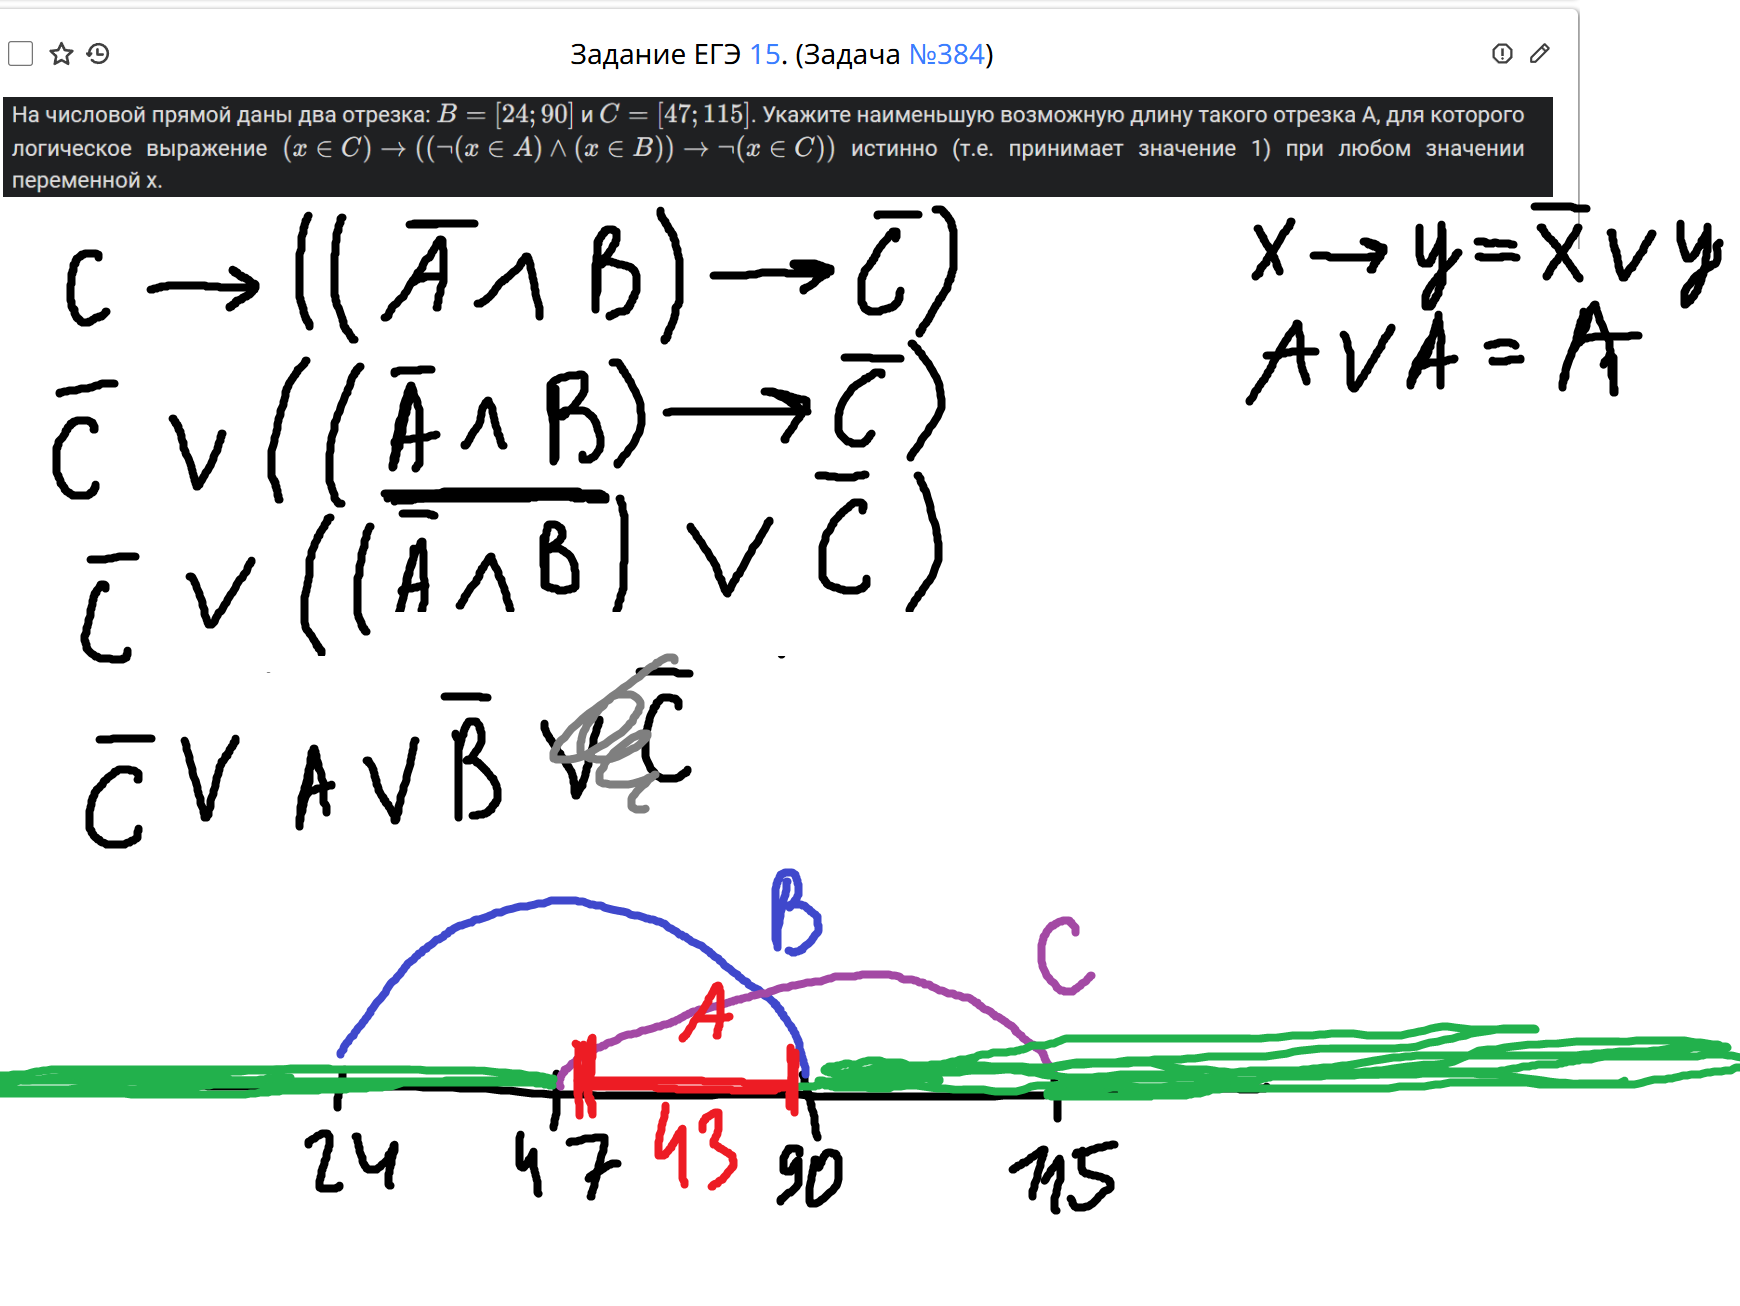 Задание ЕГЭ 15. (Задача №384)
На числовой прямой даны два отрезка: B = [24; 90] и C = [47; 115]. Укажите наименьшую возможную длину такого отрезка A, для которого
логическое выражение (x ∈ C) → ((¬(x ∈ A) ∧ (x ∈ B)) → ¬(x ∈ C)) истинно (т.е. принимает значение 1) при любом значении
переменной x.
C → ((A̅ ∧ B) → C̅)
x → y = x̅ ∨ y
A ∨ A = A
C̅ ∨ ((A̅ ∧ B) → C̅)
C̅ ∨ ((\overline{A̅ ∧ B}) ∨ C̅)
C̅ ∨ A ∨ B̅ ∨ C̅
B
C
A
24 47 43 90 115